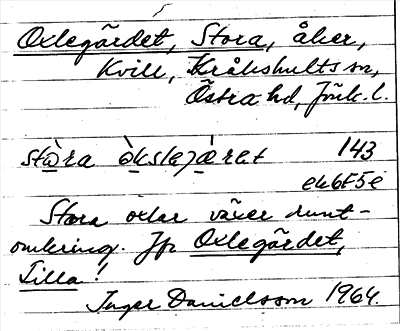 Oxlegärdet, Stora, åker,
Kvill, Kråkshults sn,
Östra hd, Jönk. l.
stòra òkslejæ̀ret 143
ek6f5e
Stora oxlar växer runt-
omkring. Jfr Oxlegärdet,
Lilla!
Inger Danielsson 1964.